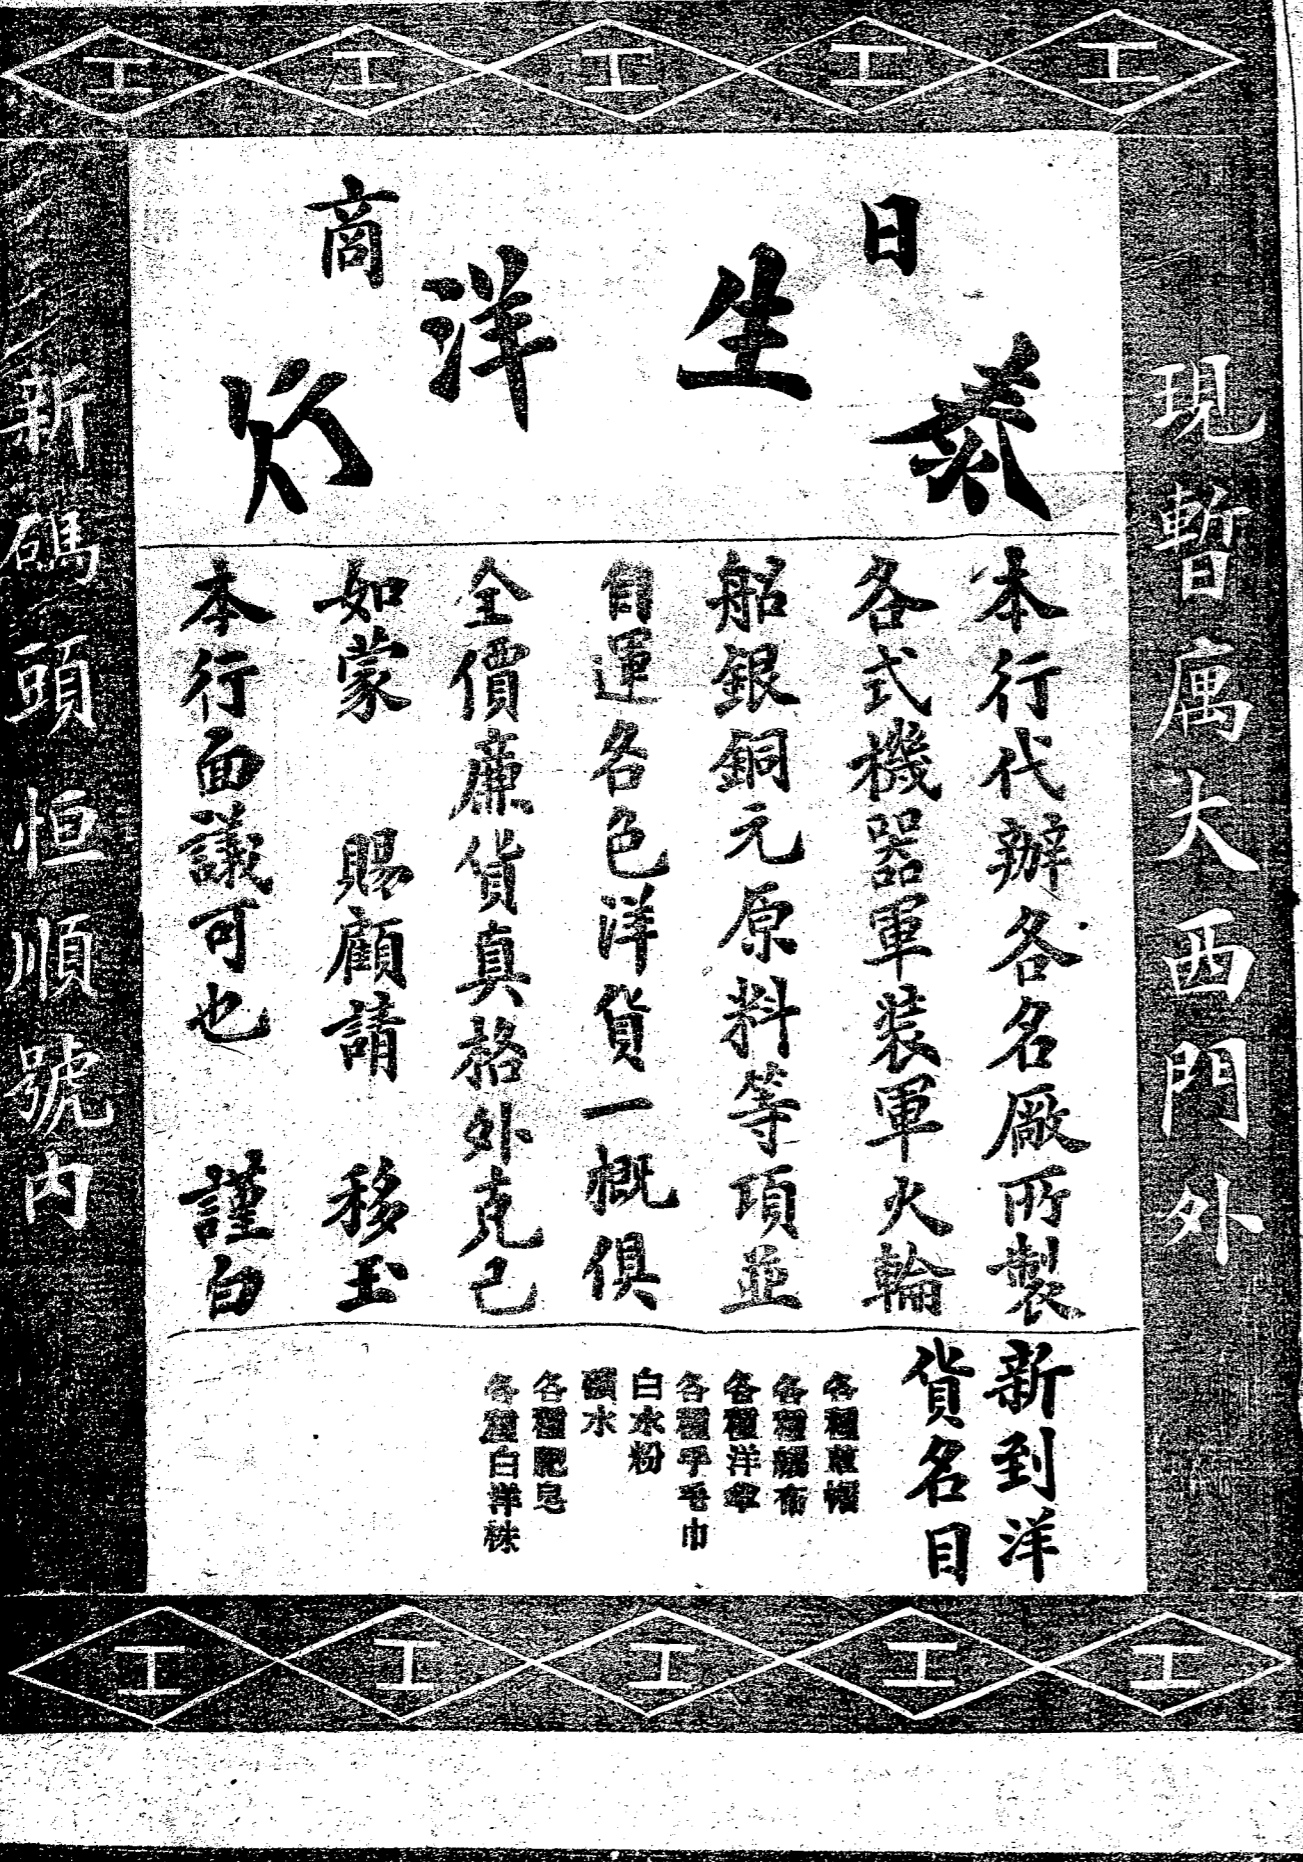 現暫寓大西門外
日商
泰生洋行
本行代辦各名廠所製
各式機器軍裝軍火輪
船銀銅元原料等項並
自運各色洋貨一概俱
全價廉貨真格外克己
如蒙 賜顧請 移玉
本行面議可也 謹白
新到洋
貨名目
各種草帽
各種絨布
各種洋傘
各種手毛巾
白水粉
顏水
各種肥皂
各種白洋襪
新碼頭恒順號內
工工工工工
工工工工工